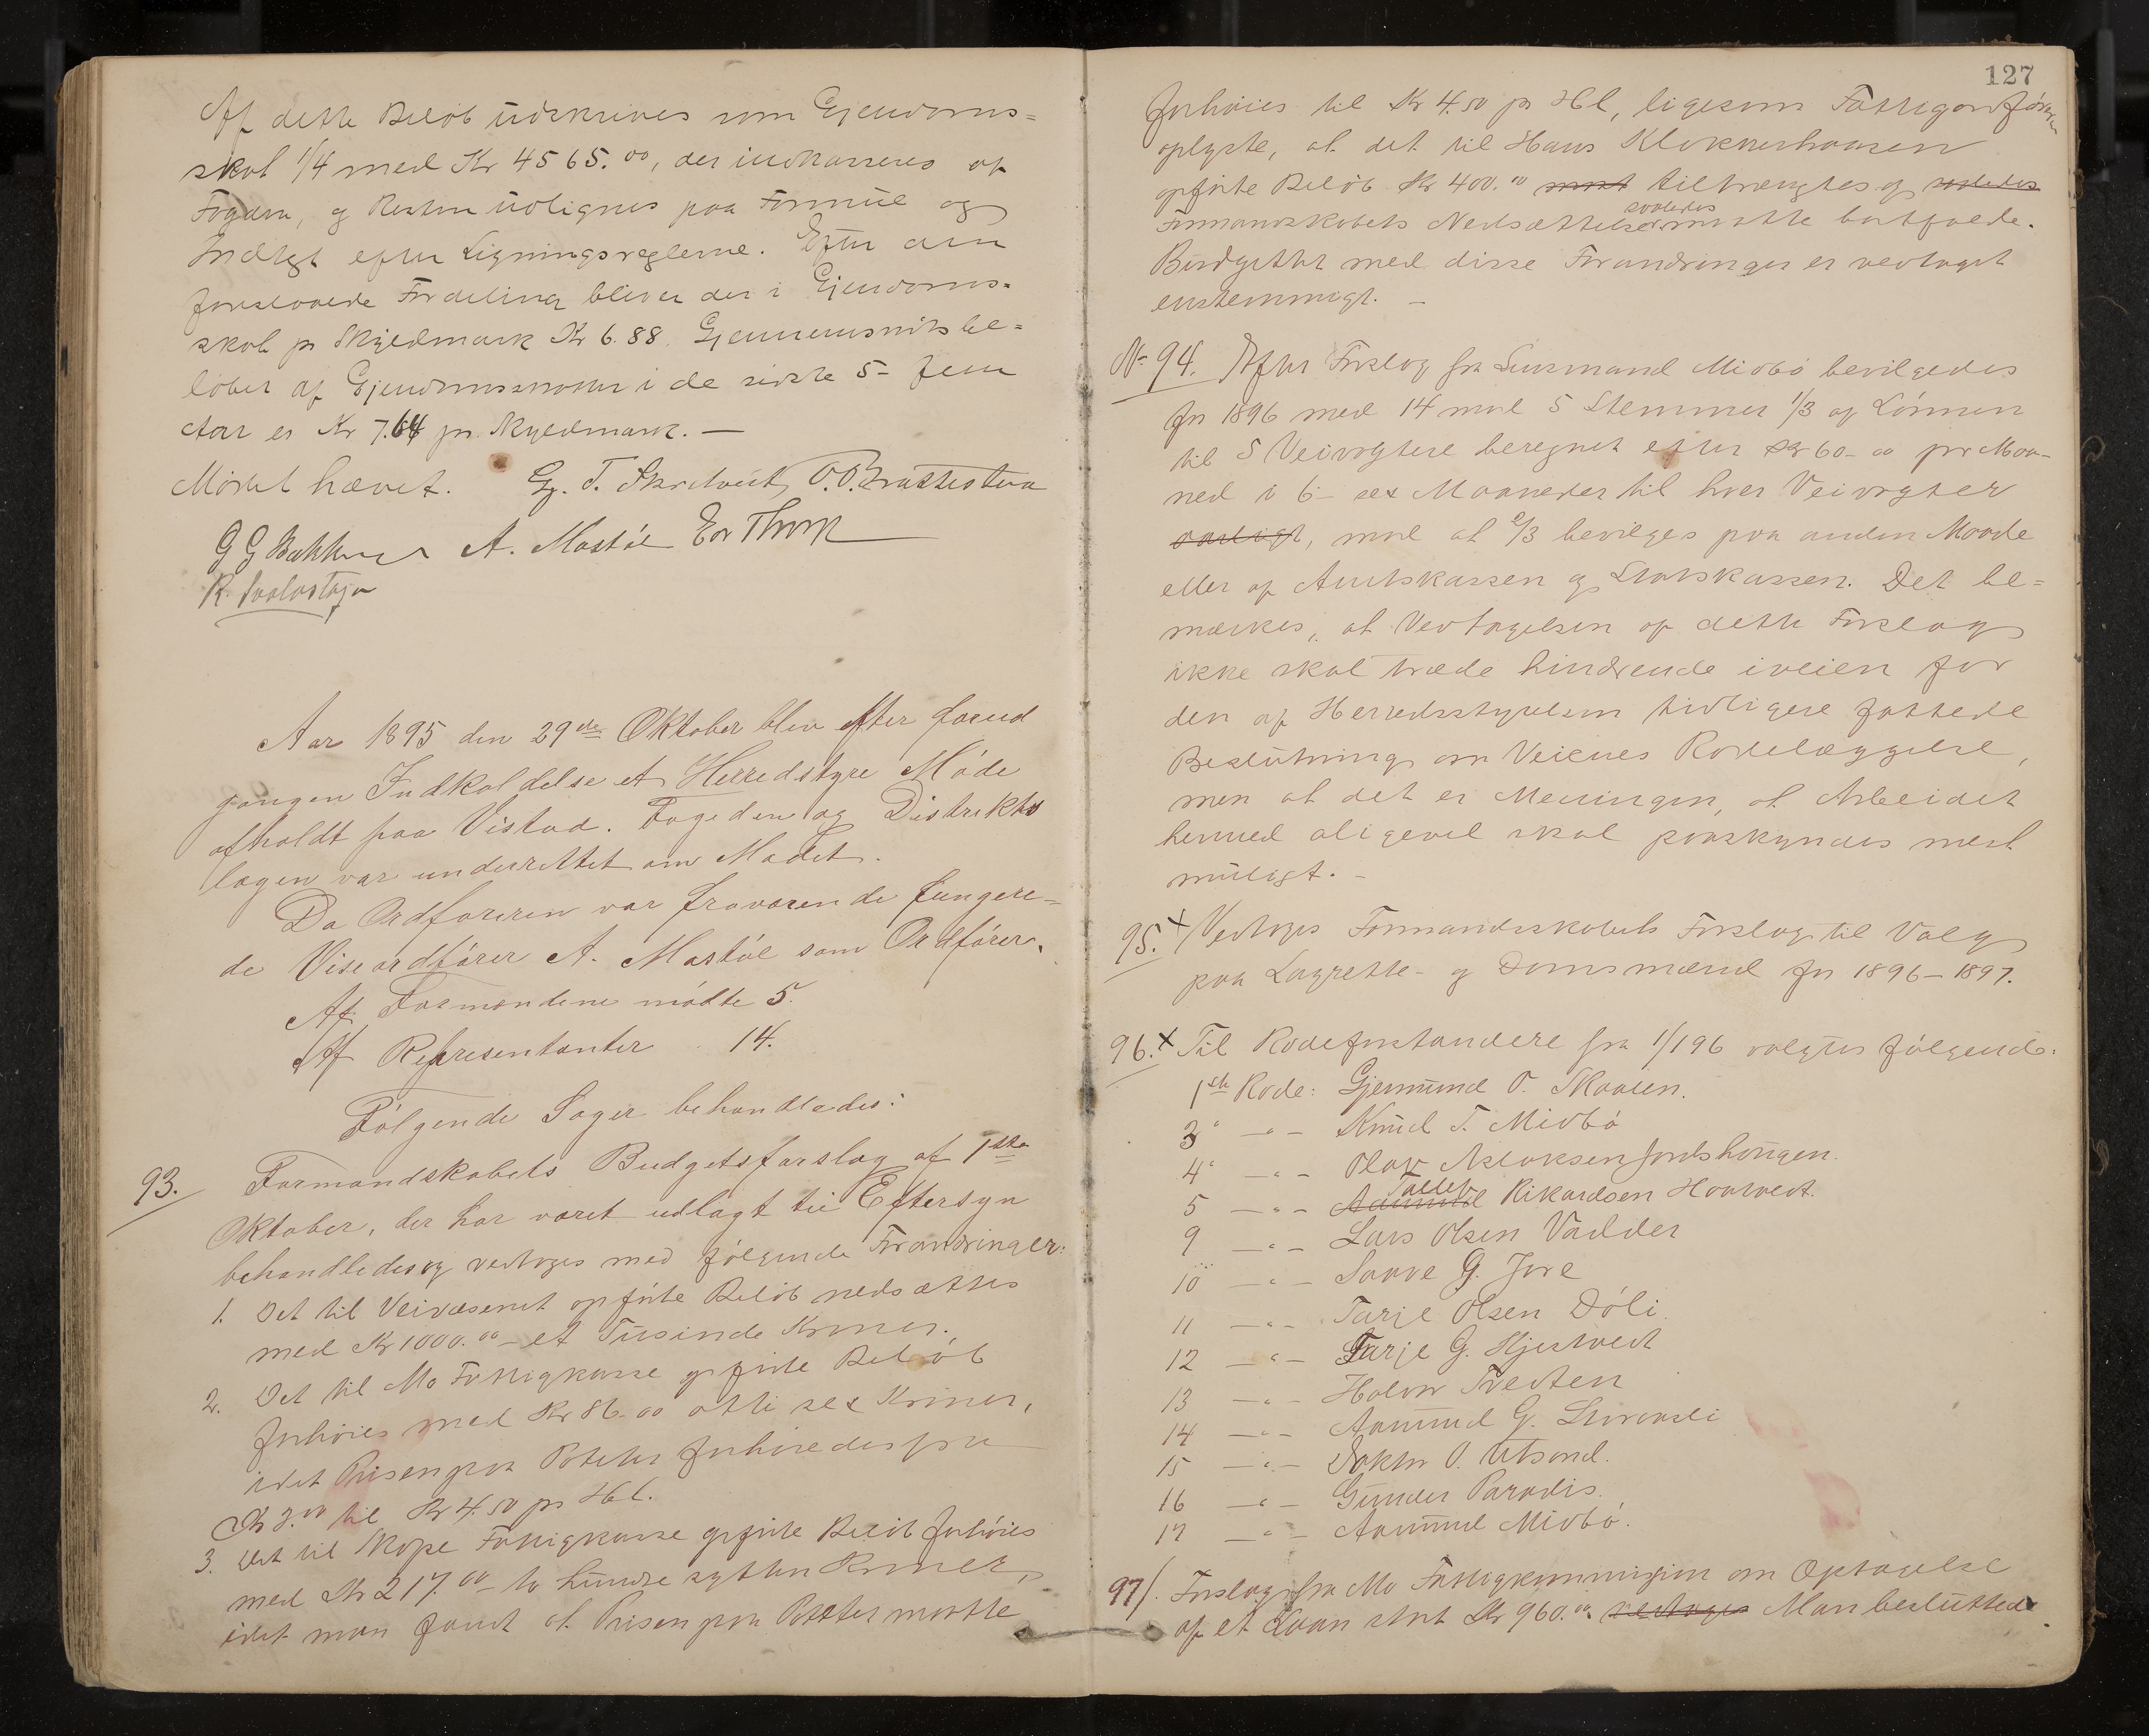 Af dette Beløb udskrives som Ejendoms-
skat 1/4 med Kr 4565.00, der indkasseres af
Fogden, og Resten udlignes paa Formue og
Indtægt efter Ligningsreglerne. Efter den
foreslaaede Fordeling bliver der i Ejendoms-
skat pr Skyldmark Kr 6.88. Gjennemsnitsbe-
løbet af Ejendomsskatten i de sidste 5- fem
Aar er Kr 7.64 pr. Skyldmark. —
Mødet hævet. G. T. O. O. Brattestein
G G Bakken A. Mostøl Eor Thorp
R.
Aar 1895 den 29de Oktober blev efter forud
gangen Indkaldelse et Herredstyre Møde
afholdt paa Vistad. Fogeden og Distrikts
lægen var underrettet om Mødet.
Da Ordføreren var fraværende fungere-
de Viseordfører A. Mostøl som Ordfører.
Af Formændene mødte 5.
Af Representanter 14.
Følgende Sager behandledes:
93. Formandskabets Budgetsforslag af 1ste
Oktober, der har været udlagt til Eftersyn
behandledes og vedtoges med følgende Forandringer:
1. Det til Veivæsenet opførte Beløb nedsættes
med Kr 1000.00 – et Tusinde Kroner.
2. Det til Mo Fattigkasse opførte Beløb
forhøies med Kr 86.00 otti sex Kroner,
idet Prisen paa Poteter forhøiedes fra
Kr 3.00 til Kr 4.50 pr Hl.
3. Det til Skafse Fattigkasse opførte Beløb forhøies
med Kr 217.00 – to hundre sytten Kroner,
idet man fandt at Prisen paa Poteter maatte
127
forhøies til Kr 4.50 pr Hl, ligesom Fattigordføreren
oplyste, at det til Hans Klokkerhaasen
opførte Beløb Kr 400.00 maat tiltrængtes og saaledes
saaledes
Formandskabets Nedsættelse maatte bortfalde.
Budgettet med disse Forandringer er vedtaget
enstemmigt. –
No 94. Efter Forslag fra Lensmand Midbø bevilgedes
for 1896 med 14 mod 5 Stemmer 1/3 af Lønnen
til 5 Veivogtere beregnet efter Kr 60-00 pr Maa-
ned i 6- sex Maaneder til hver Veivogter
aarligt, mod at 2/3 bevilges paa anden Maade
eller af Amtskassen og Statskassen. Det be-
mærkes, at Vedtagelsen af dette Forslag
ikke skal træde hindrende iveien for
den af Herredsstyrelsen tidligere fattede
Beslutning om Veienes Rodelæggelse,
men at det er Meningen, at Arbeidet
hermed aligevel skal paaskyndes mest
muligt. –
95. x Vedtoges Formandsskabets Forslag til Valg
paa Lagrette- og Domsmænd for 1896–1897.
96. x Til Rodeforstandere fra 1/1 96 valgtes følgende:
1ste Rode: Gjermund O. Skaalen.
3" – " – Knud T. Midbø
4" – " – Olav Aslaksen Jordshaugen.
Tallef
5 – " – Aamund Rikardsen Haatvedt.
9 – " – Lars Olsen Vadder
10 – " – Saave G. Jore
11 – " – Tarje Olsen Døli
12 – " – Tarje G. Hjestvedt
13 – " – Halvor Tvedten
14 – " – Aamund G.
15 – " – Doktor O. Utsond.
16 – " – Gunder Paradis.
17 – " – Aamund Midbø.
97/. Forslag fra Mo Fattigkommission om Optagelse
af et Laan stort Kr 960.00 vedtoges Man besluttede